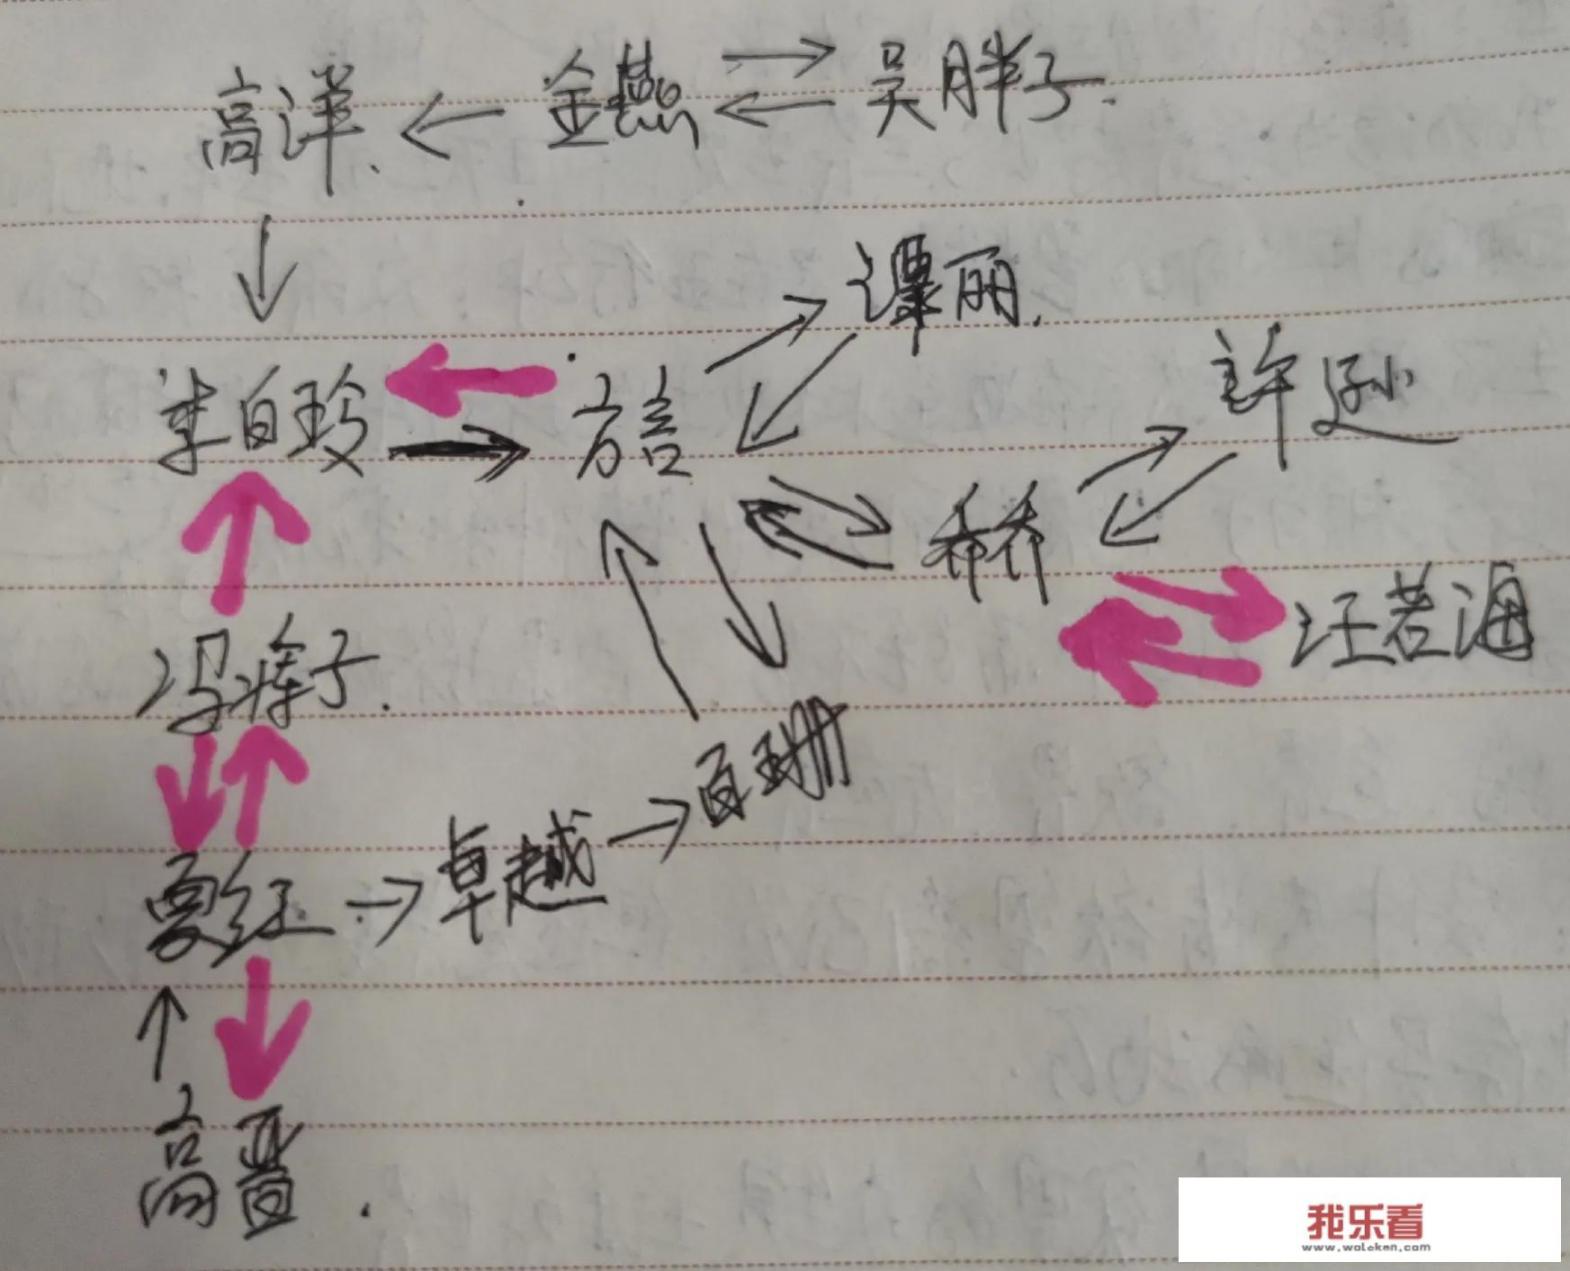 高洋 金燕 吴胖子
谭丽
李白玲 方言 许逊
乔乔 汪若海
冯瘸子
夏红 卓越 百珊
高晋
我乐看
www.woleken.com